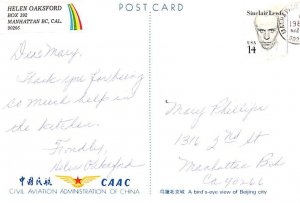 HELEN OAKSFORD
BOX 392
MANHATTAN BC, CAL.
90266
POST CARD
Sinclair Lewis
USA
14
Dear Mary,
Thank you for being
so much help in
the kitchen.
Fondly,
Helen Oaksford
Mary Phillips
1316 2nd St
Manhattan Bch
Ca 90266
中国民航 CAAC
CIVIL AVIATION ADMINISTRATION OF CHINA
鸟瞰北京城 A bird's-eye view of Beijing city